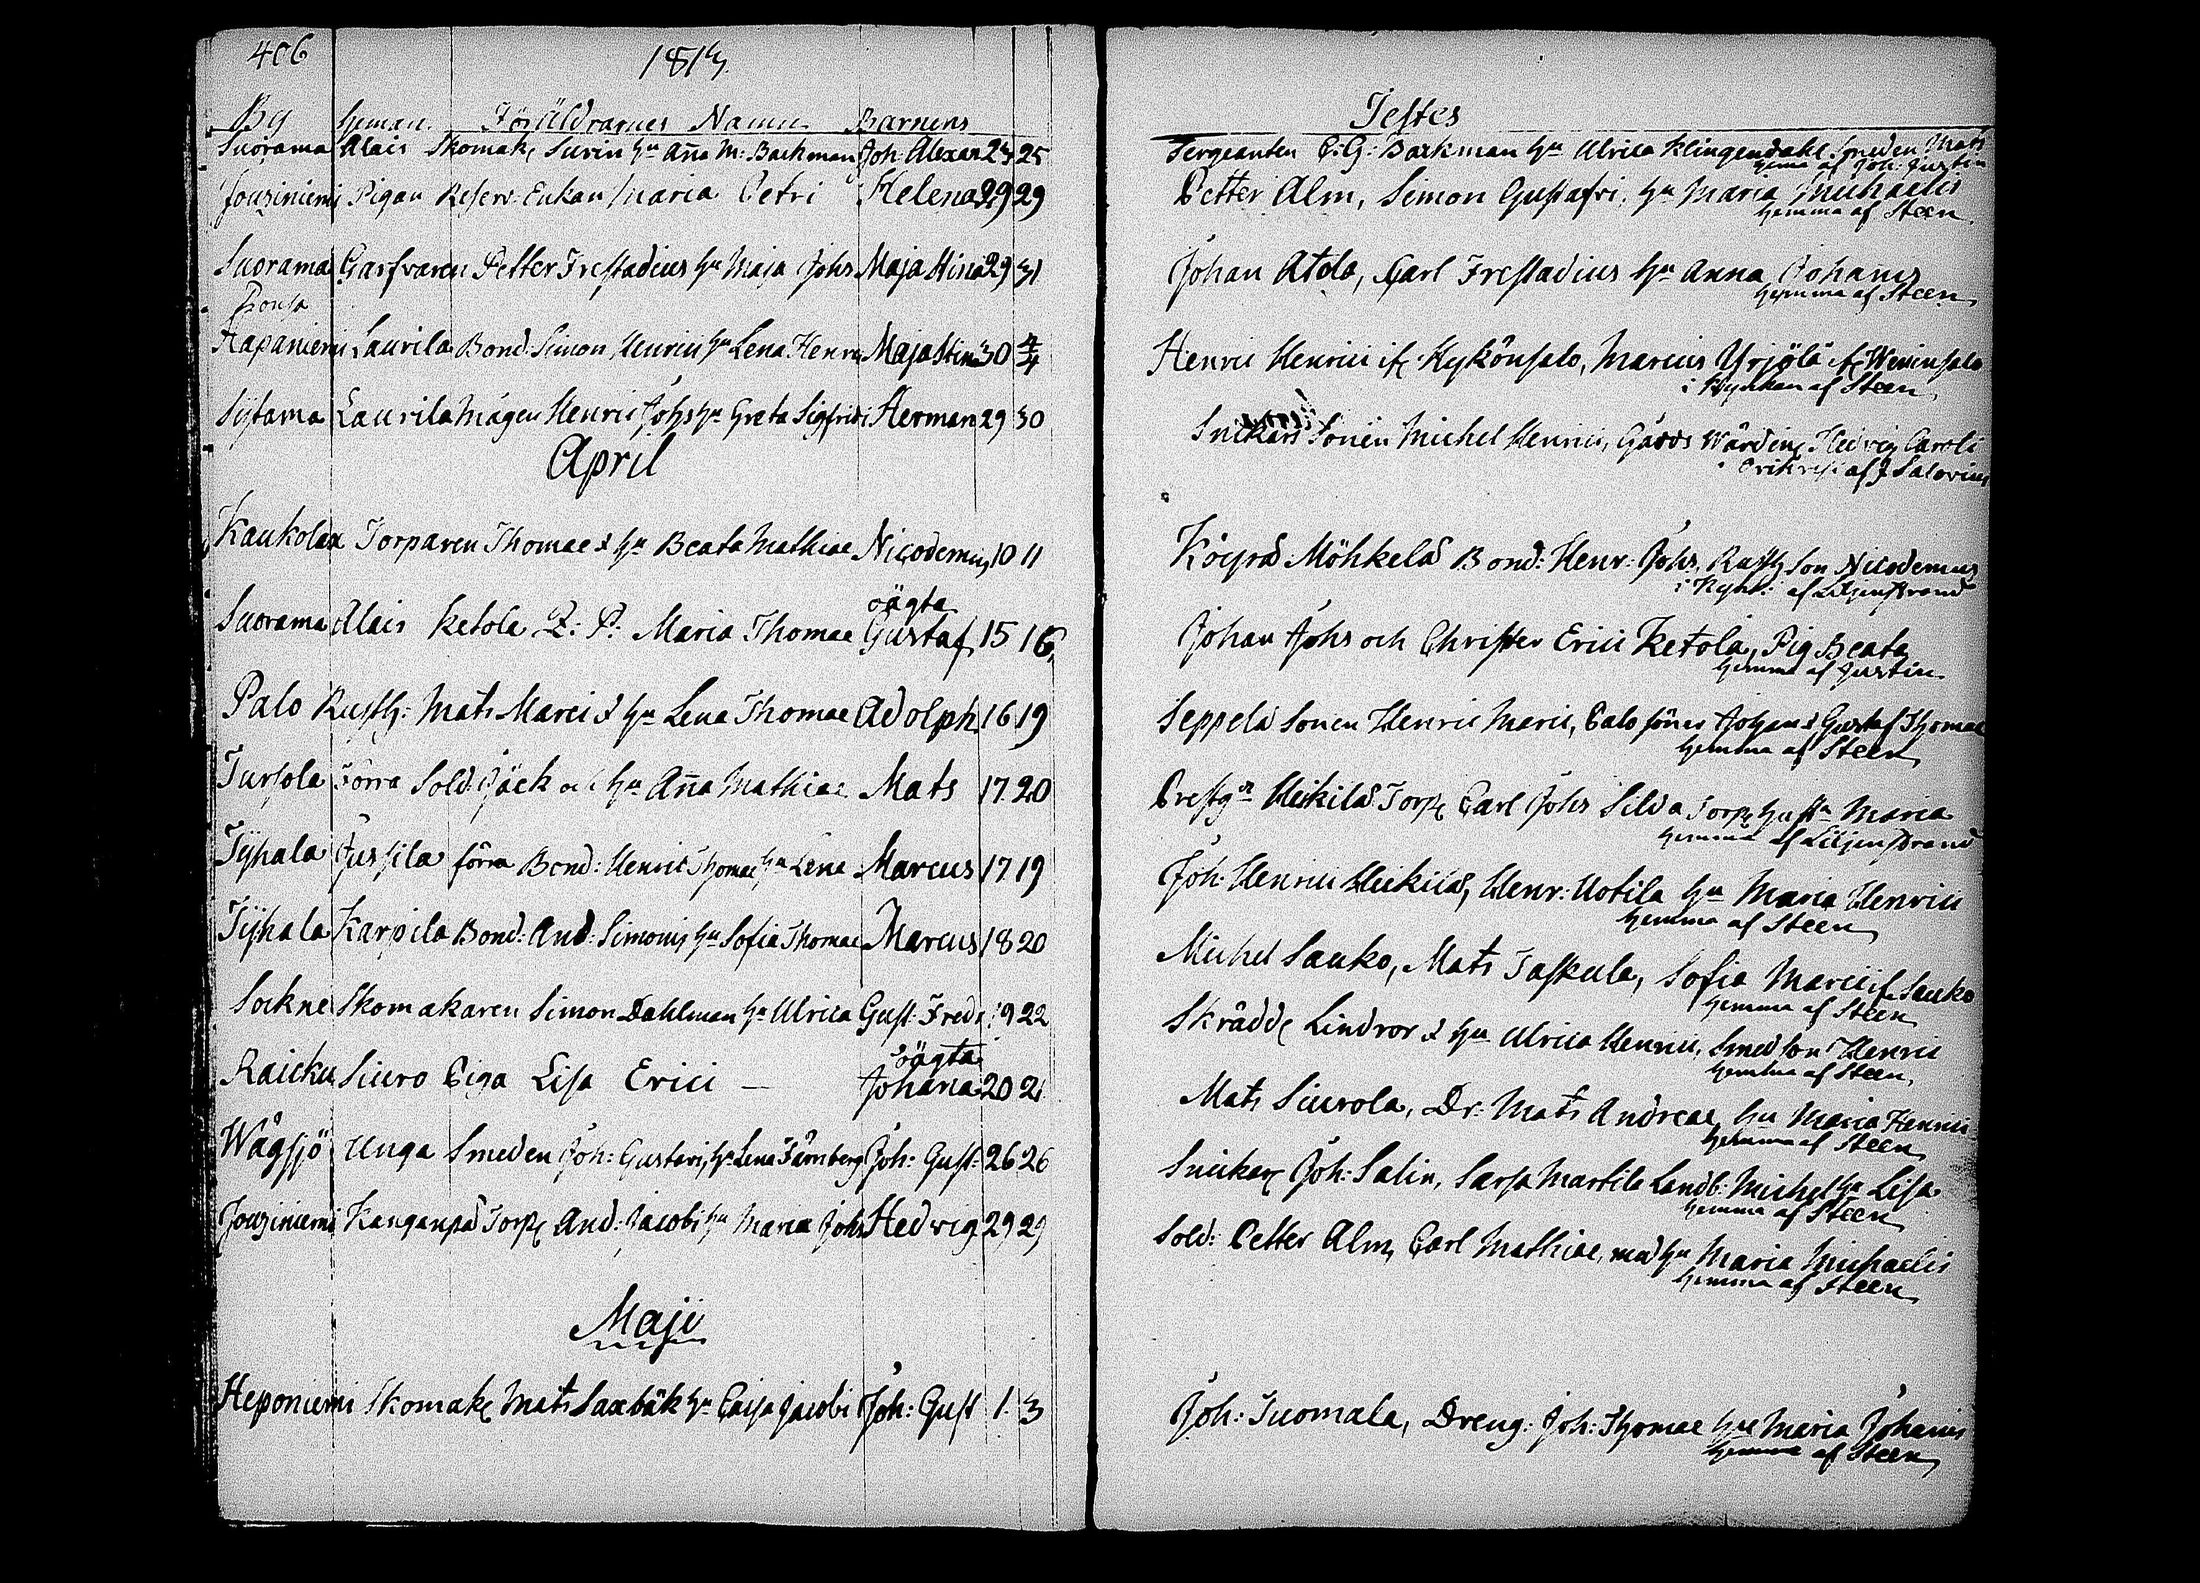 406
1813.
By Heman. Föräldrarnes Namn Barnens
Suorama Alais Skomak. Surin hu Aña M: Backman Joh: Alexan 24 25
Jouziniemi Pigan Reserv: Enkan Maria Petri Helena 29 29
Suorama Garfvaren Petter Frestadius hu Maja Johs Maja Stina 29 31
Ponsa
Hapaniemi Laurila Bond: Simon Henrici hu Lena Henri Maja Stina 30 4/4
Sÿtama Laurila Mågen Henric Johs hu Greta Sigfridi Herman 29 30
April
Kaukola Torparen Thomae & hu Beata Mathiae Nicodemus 10 11
oägta
Suorama Alais Ketola Maria Thomae Gustaf 15 16
Palo Rusth: Mats Marci & hu Lena Thomae Adolph 16 19
Tursola Förra Sold: Jäck och hu Aña Mathiae Mats 17 20
Tÿhala Jussila förra Bond: Henric Thomae hu Lena Marcus 17 19
Tÿhala Karpila Bond: And: Simonis hu Sofia Thomae Marcus 18 20
Sockne Skomakaren Simon Dahlman hu Ulrica Gust: Fredr 19 22
oägta
Raicku Siuro Piga Lisa Erici — Johana 20 2
Wågsjö Unga Smeden Joh: Gustavi, hu Lena Färnberg Joh: Gust: 26 26
Jouziniemi Kanganpä Torp. And: Jacobi hu Maria Johs Hedvig 29 29
Maji
Heponiemi Skomak. Mats Saxbäk hu Caisa Jacobi Joh: Gust 1 3
Testes
Sergeanten C: G: Backman hu Ulrica Klingendahl Smeden Mats
hemma af Joh: Justin
Petter Alm, Simon Gustafri, hu Maria Michaelis
hemma af Steen
Johan Atola, Carl Frestadius hu Anna Johanis
hemma af Steen
Henric Henrici if. Kykönsalo, Marcus Yrjölä if. Weninsalo
i Kyrkan af Steen
Snikars Sonen Michel Henrici, Gårds Wärdin. Hedvig Caroli
af J Salovius
Köyrä Möhkeläs Bond: Henr: Johs, Rusth Son Nicodemus
i Kyrk: af Liljenstrand
Johan Johs och Christer Erici Ketola, Pig Beata
hemma af Justin
Seppelä Sonen Henric Marci, Palo söner Johan & Gustaf Thomae
hemma af Steen
Prestg Heikiläs Torp. Carl Johs Silda Torp. hustr Maria
hemma af Liljenstrand
Joh: Henrici Heikiläs, Henr: Uotila hu Maria Henrici
hemma af Steen
Michel Sauko, Mats Taskula, Sofia Marci if. Sauko
hemma af Steen
Skrädd. Lindror & hu Ulrica Henrici, Smed son Henric
hemma af Steen
Mats Siurola, Dr: Mats Andreae, hu Maria Henrici
hemma af Steen
Snickar Joh: Salin, Sarsa Martila Landb: Michel hu Lisa
hemma af Steen
Sold: Petter Alm, Carl Mathiae, med hu Maria Michaelis
hemma af Steen
Joh: Tuomala, Dreng: Joh: Thomae hu Maria Johanis
hemma af Steen